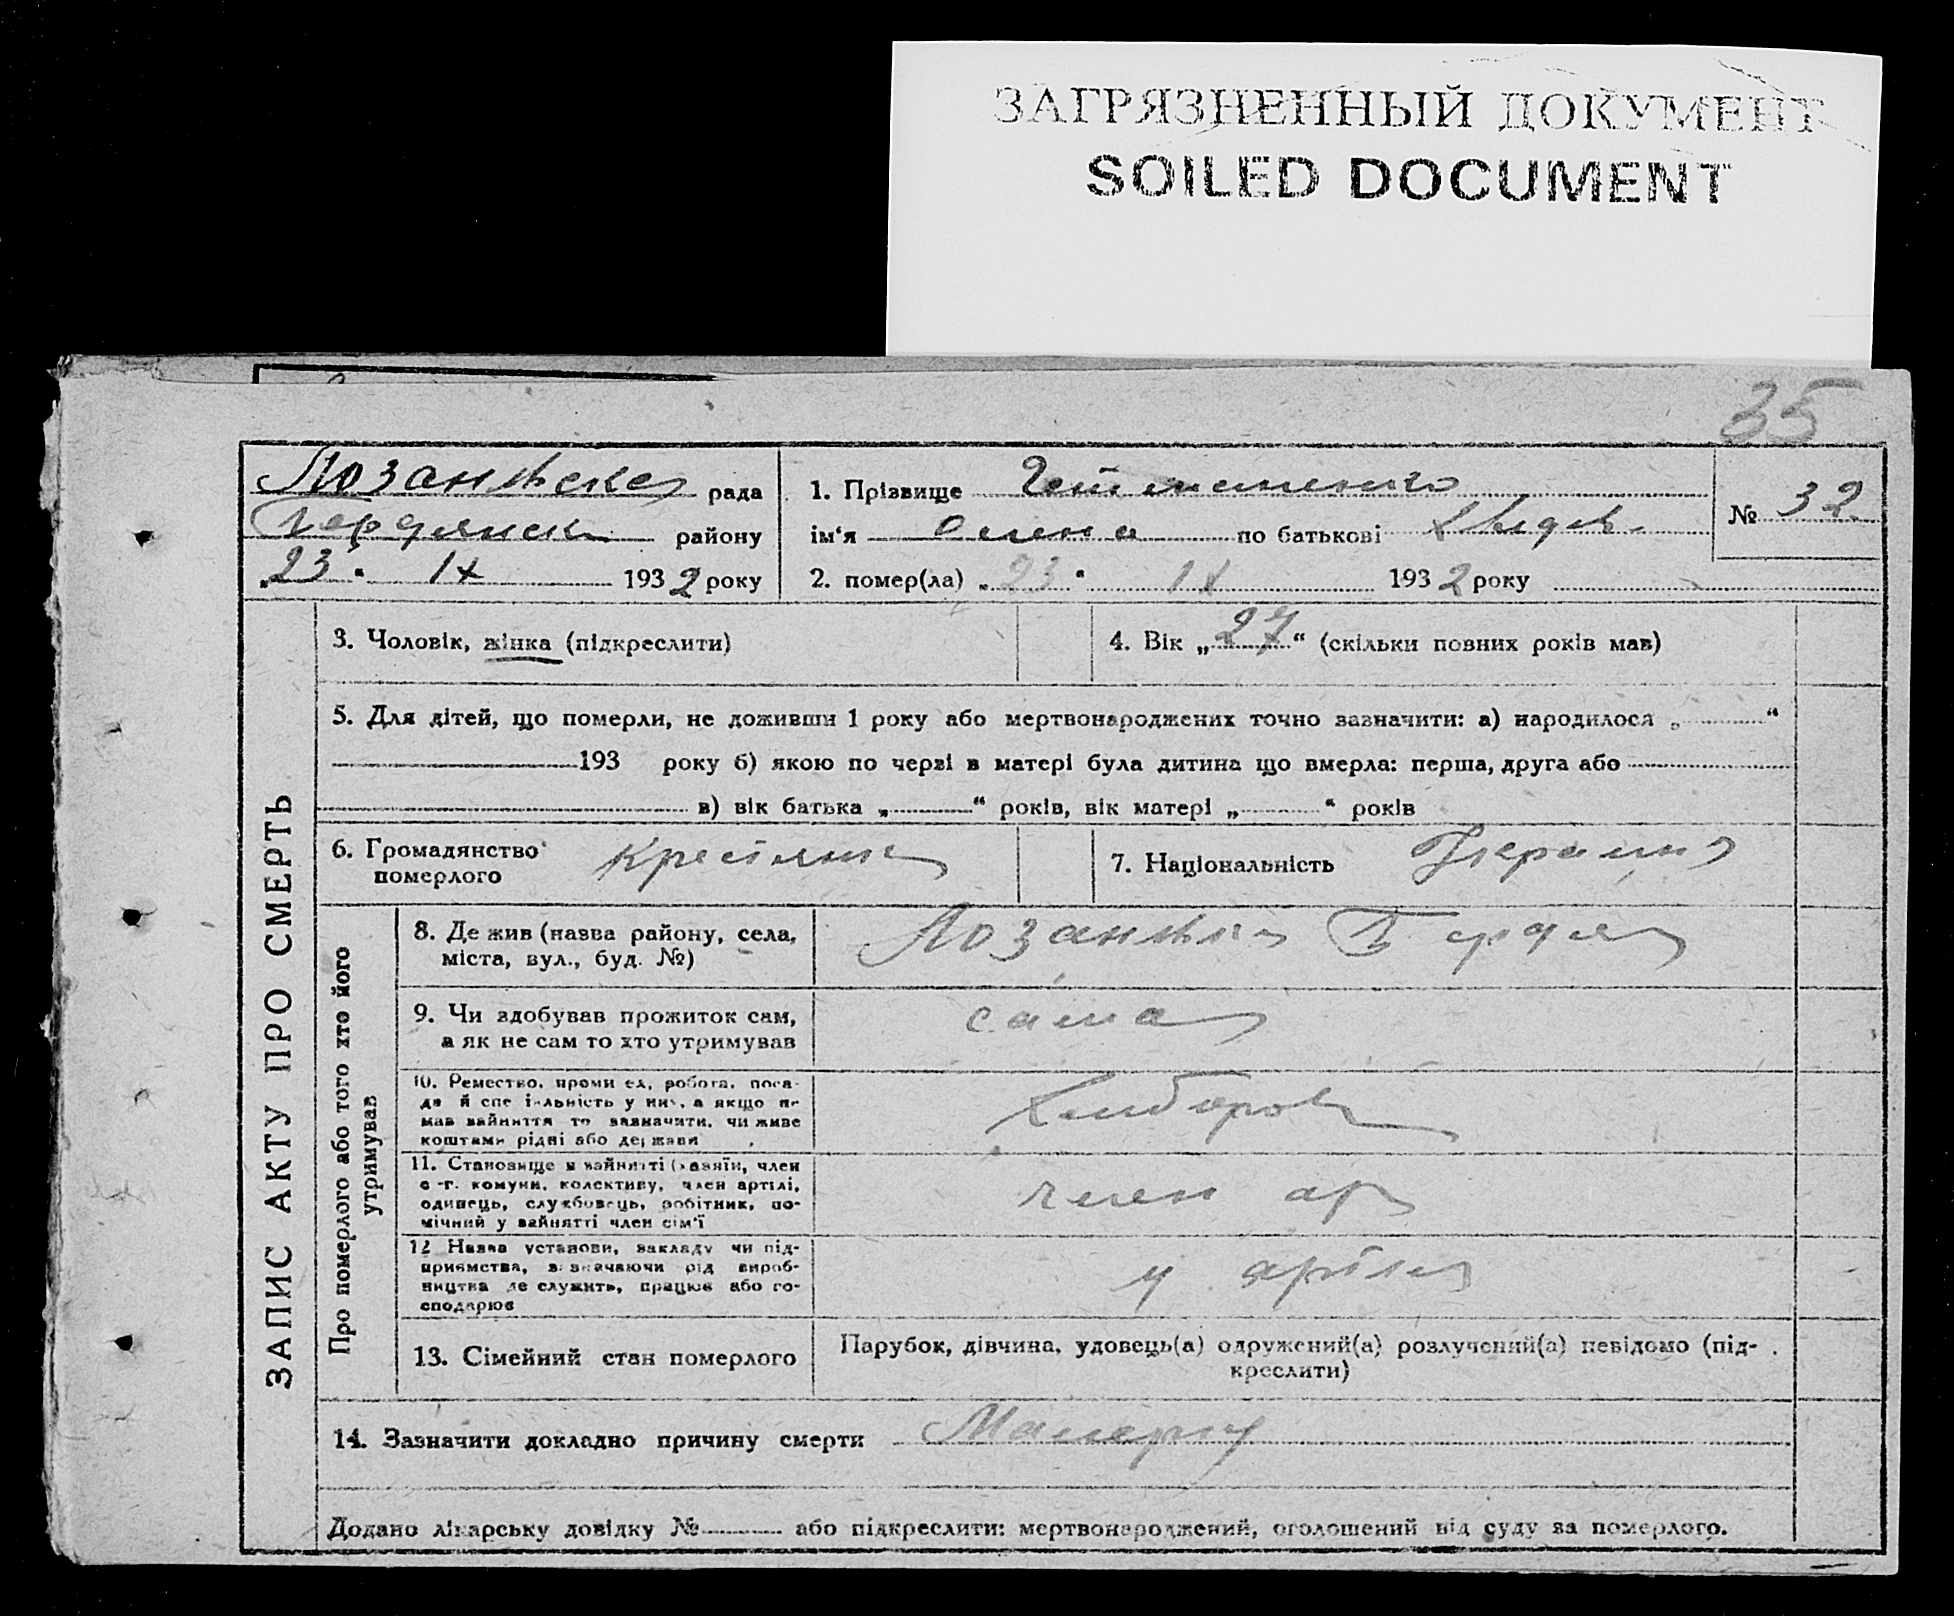 ЗАГРЯЗНЕННЫЙ ДОКУМЕНТ
SOILED DOCUMENT
35
рада
району
„23“ IX 1932 року
1. Прізвище
ім'я Олена по батькові
2. помер(ла) „23“ IX 1932 року
№ 32
ЗАПИС АКТУ ПРО СМЕРТЬ
3. Чоловік, жінка (підкреслити)
4. Вік „27“ (скільки повних років мав)
5. Для дітей, що померли, не доживши 1 року або мертвонароджених точно зазначити: а) народилося „ “
193 року б) якою по черзі в матері була дитина що вмерла: перша, друга або
в) вік батька „ “ років, вік матері „ “ років
6. Громадянство
померлого
7. Національність
Про померлого або того хто його
утримував
8. Де жив (назва району, села,
міста, вул., буд. №)
9. Чи здобував прожиток сам,
а як не сам то хто утримував
сама
10. Ремество, промисел, робота, поса-
да й спеціяльність у них, а якщо не
мав зайняття то зазначити, чи живе
коштами рідні або держави
11. Становище в зайнятті (хазяїн, член
с.-г. комуни, колективу, член артілі,
одинець, службовець, робітник, по-
мічний у зайнятті член сім'ї
член ар
12 Назва установи, закладу чи під-
приємства, зазначаючи рід вироб-
ництва де служить, працює або го-
сподарює
у артілі
13. Сімейний стан померлого
Парубок, дівчина, удовець(а) одружений(а) розлучений(а) невідомо (під-
креслити)
14. Зазначити докладно причину смерти
Додано лікарську довідку № або підкреслити: мертвонароджений, оголошений від суду за померлого.